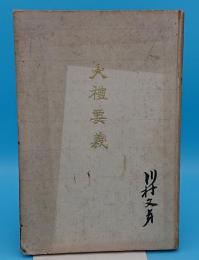 大禮要義
川村文貞